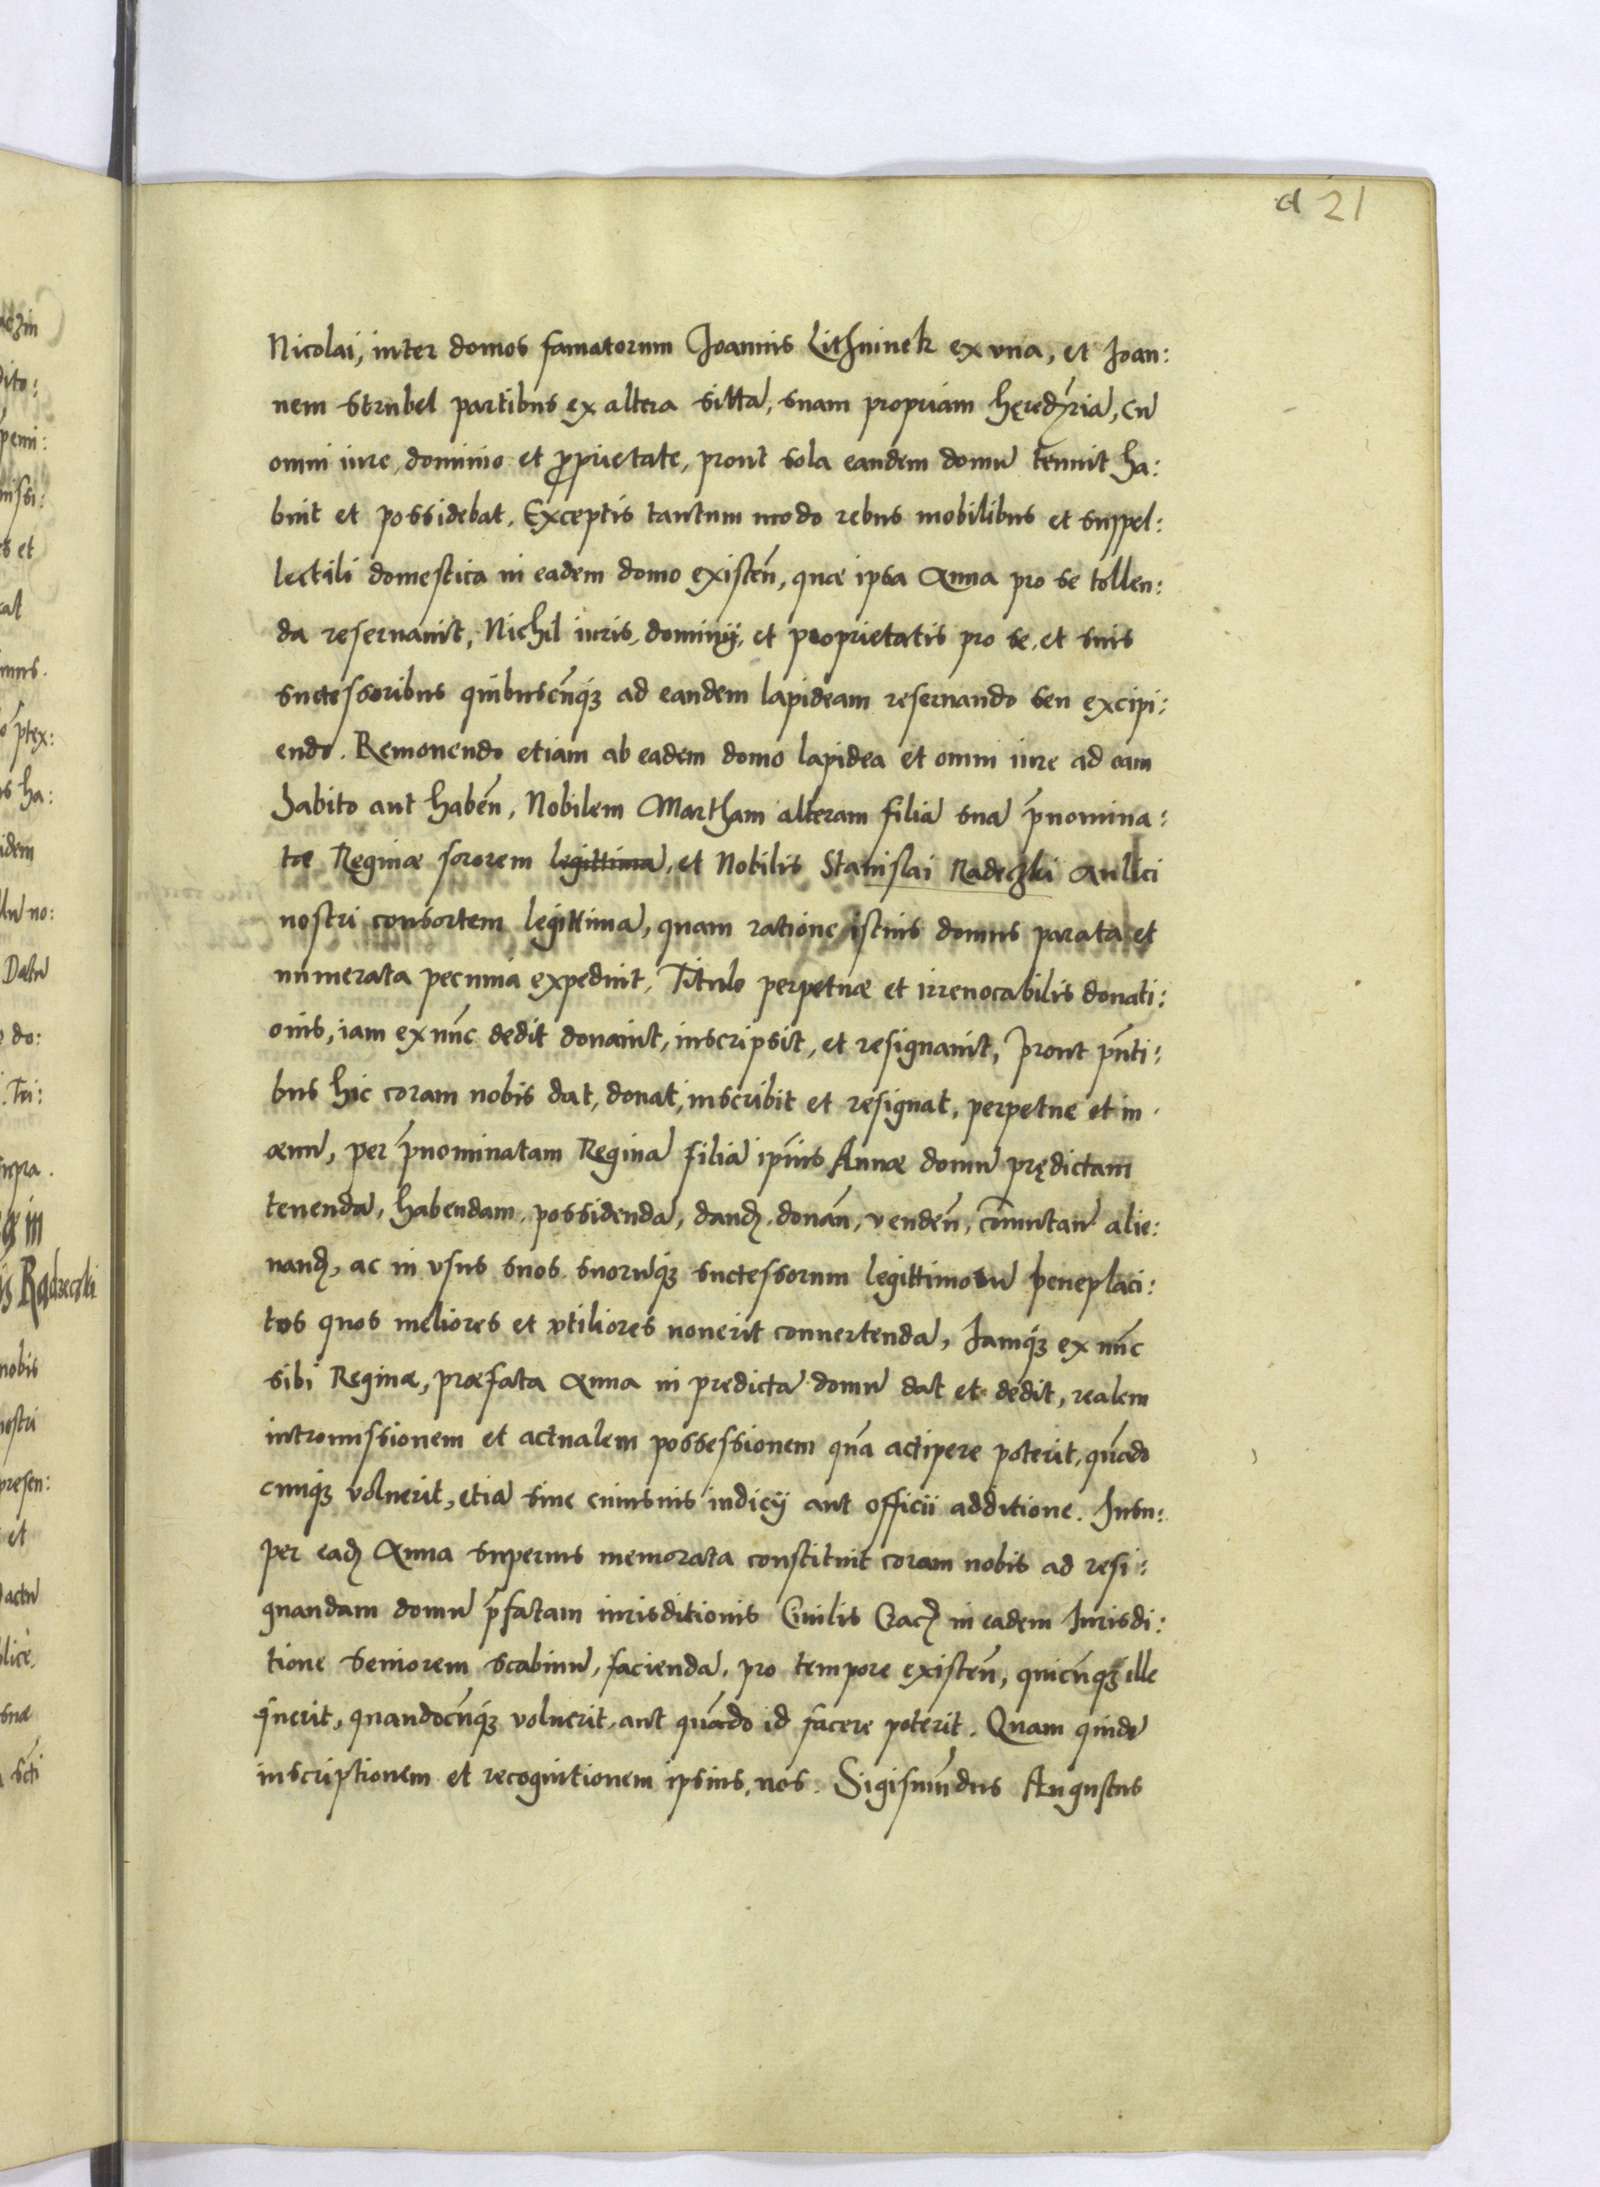 a 21
Nicolai, inter domos famatorum Joannis Lithninek ex vna, et Joan:
nem Strubel partibus ex altera sittã, suam propriam hęredr̃iã, cũ
omni iure, dominio et ꝓprietate, prout sola eandem domũ tenuit ha:
buit et possidebat. Exceptis tantum modo rebus mobilibus et suppel:
lectili domestica in eadem domo existeñ, quæ ipsa Anna pro se tollen:
da reseruauit, Nichil iuris, dominij, et proprietatis pro se, et suis
successoribus quibuscũqʒ ad eandem lapideam reseruando seu excipi:
endo. Remouendo etiam ab eadem domo lapidea et omni iure ad eam
habito aut habeñ, Nobilem Martham alteram filiã suã p̃nomina:
tæ Reginæ sororem legittimã, et Nobilis Stanislai Radeczki Aulici
nostri consortem legittimã, quam ratione istius domus parata et
numerata pecunia expediuit, Titulo perpetuæ et irreuocabilis donati:
onis, iam ex nũc dedit donauit, inscripsit, et resignauit, Prout pñti:
bus hic coram nobis dat, donat, inscribit et resignat, perpetue et in
æuũ, per p̃nominatam Reginã filiã ip̃ius Annæ domũ prędictam
tenendã, habendam, possidendã, dandꝭ, donañ, vendeñ, com̃utañ alie:
nandꝭ, ac in vsus suos suorũqʒ successorum legittimorũ beneplaci:
tos quos meliores et vtiliores nouerit conuertendã, Jamqʒ ex nũc
sibi Reginæ, præfata Anna in predictã domũ dat et dedit, realem
intromissionem et actualem possessionem quã accipere poterit, quãdo
cunqʒ voluerit, etiã sine cuiusuis iudicij aut officii additione. Insu:
per eadꝭ Anna superius memorata constituit coram nobis ad resi:
gnandam domũ p̃fatam iurisditionis Ciuilis Cracꝭ in eadem Jurisdi:
tione seniorem scabinũ, faciendã, pro tempore existeñ, quicũqʒ ille
fuerit, quandocũqʒ voluerit, aut quãdo id facere poterit. Quam quidẽ
inscriptionem et recognitionem ipsius, nos Sigismũdus Augustus